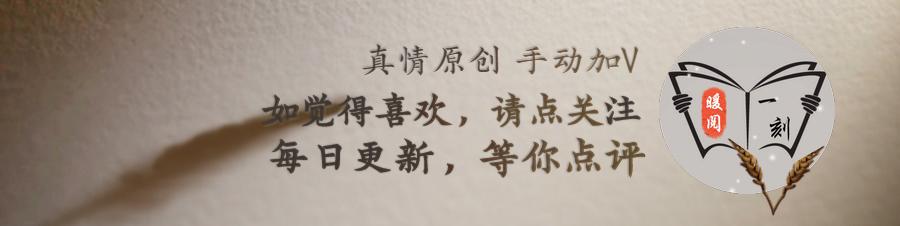 真情原创 手动加V
如觉得喜欢，请点关注
每日更新，等你点评
暖阅
一刻